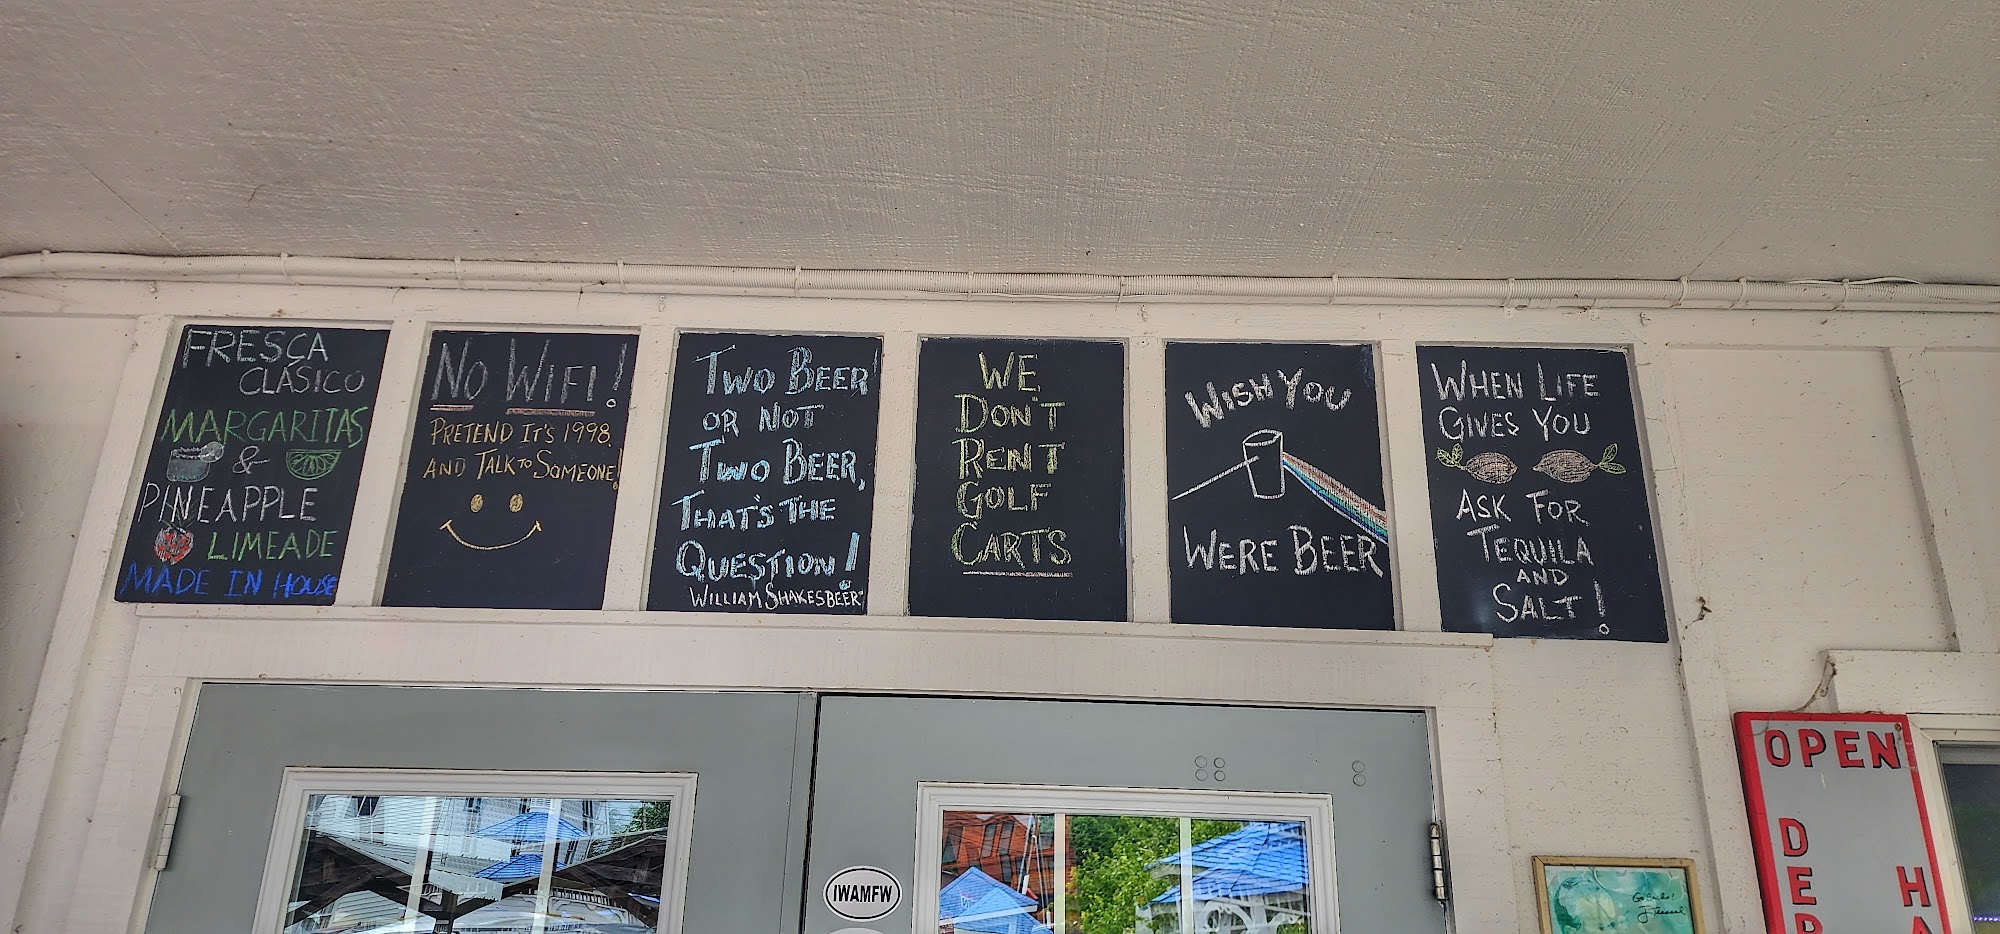 FRESCA
CLÁSICO
MARGARITAS
&
PINEAPPLE
LIMEADE
MADE IN HOUSE
NO WIFI!
PRETEND IT'S 1998.
AND TALK TO SOMEONE!
TWO BEER
OR NOT
TWO BEER,
THAT'S THE
QUESTION!
WILLIAM SHAKESBEER
WE
DON'T
RENT
GOLF
CARTS
WISH YOU
WERE BEER
WHEN LIFE
GIVES YOU
ASK FOR
TEQUILA
AND
SALT!
IWAMFW
OPEN
D
E
H